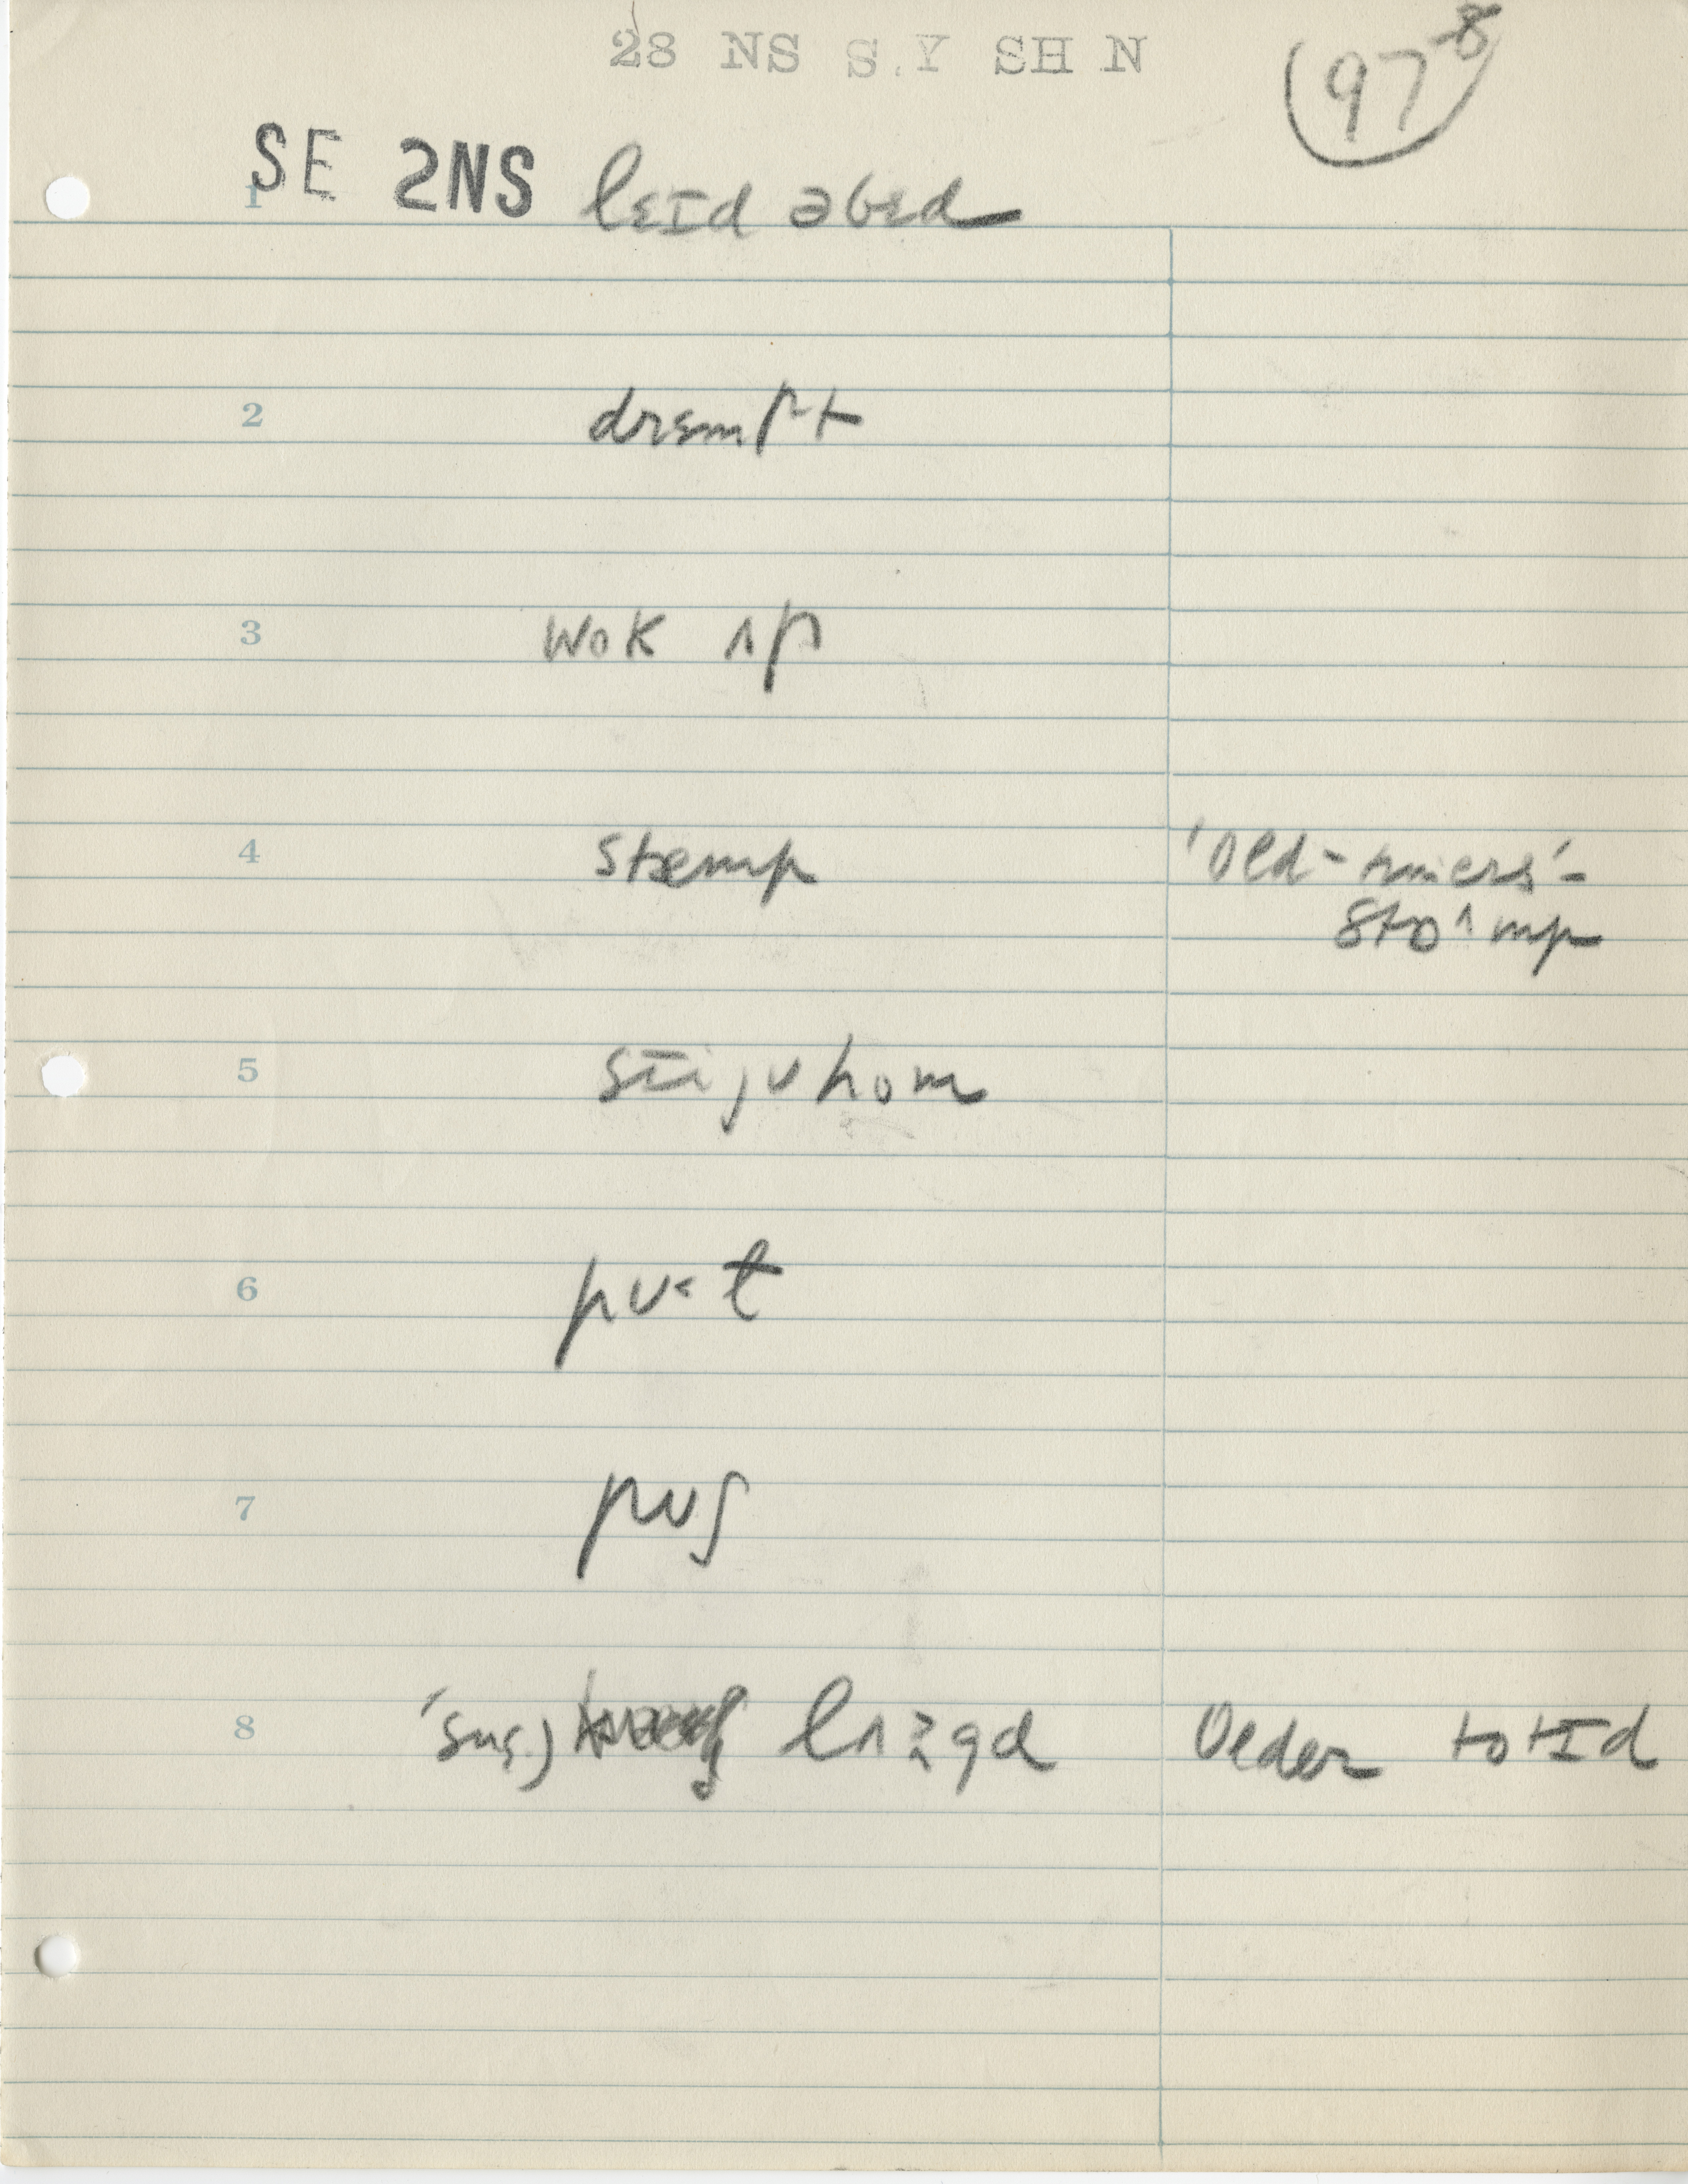 28 NS S.Y SH N
97-8
SE 2NS
1 lɛɪd əbɛd
2 drɛmpt
3 wok ʌp
4 stæmp 'Old-timers'-
stɒ^mp
5 sɪijʊhom
6 pʊ<t
7 pʊʃ
8 'sug.) lʌgɡd Older totɪd